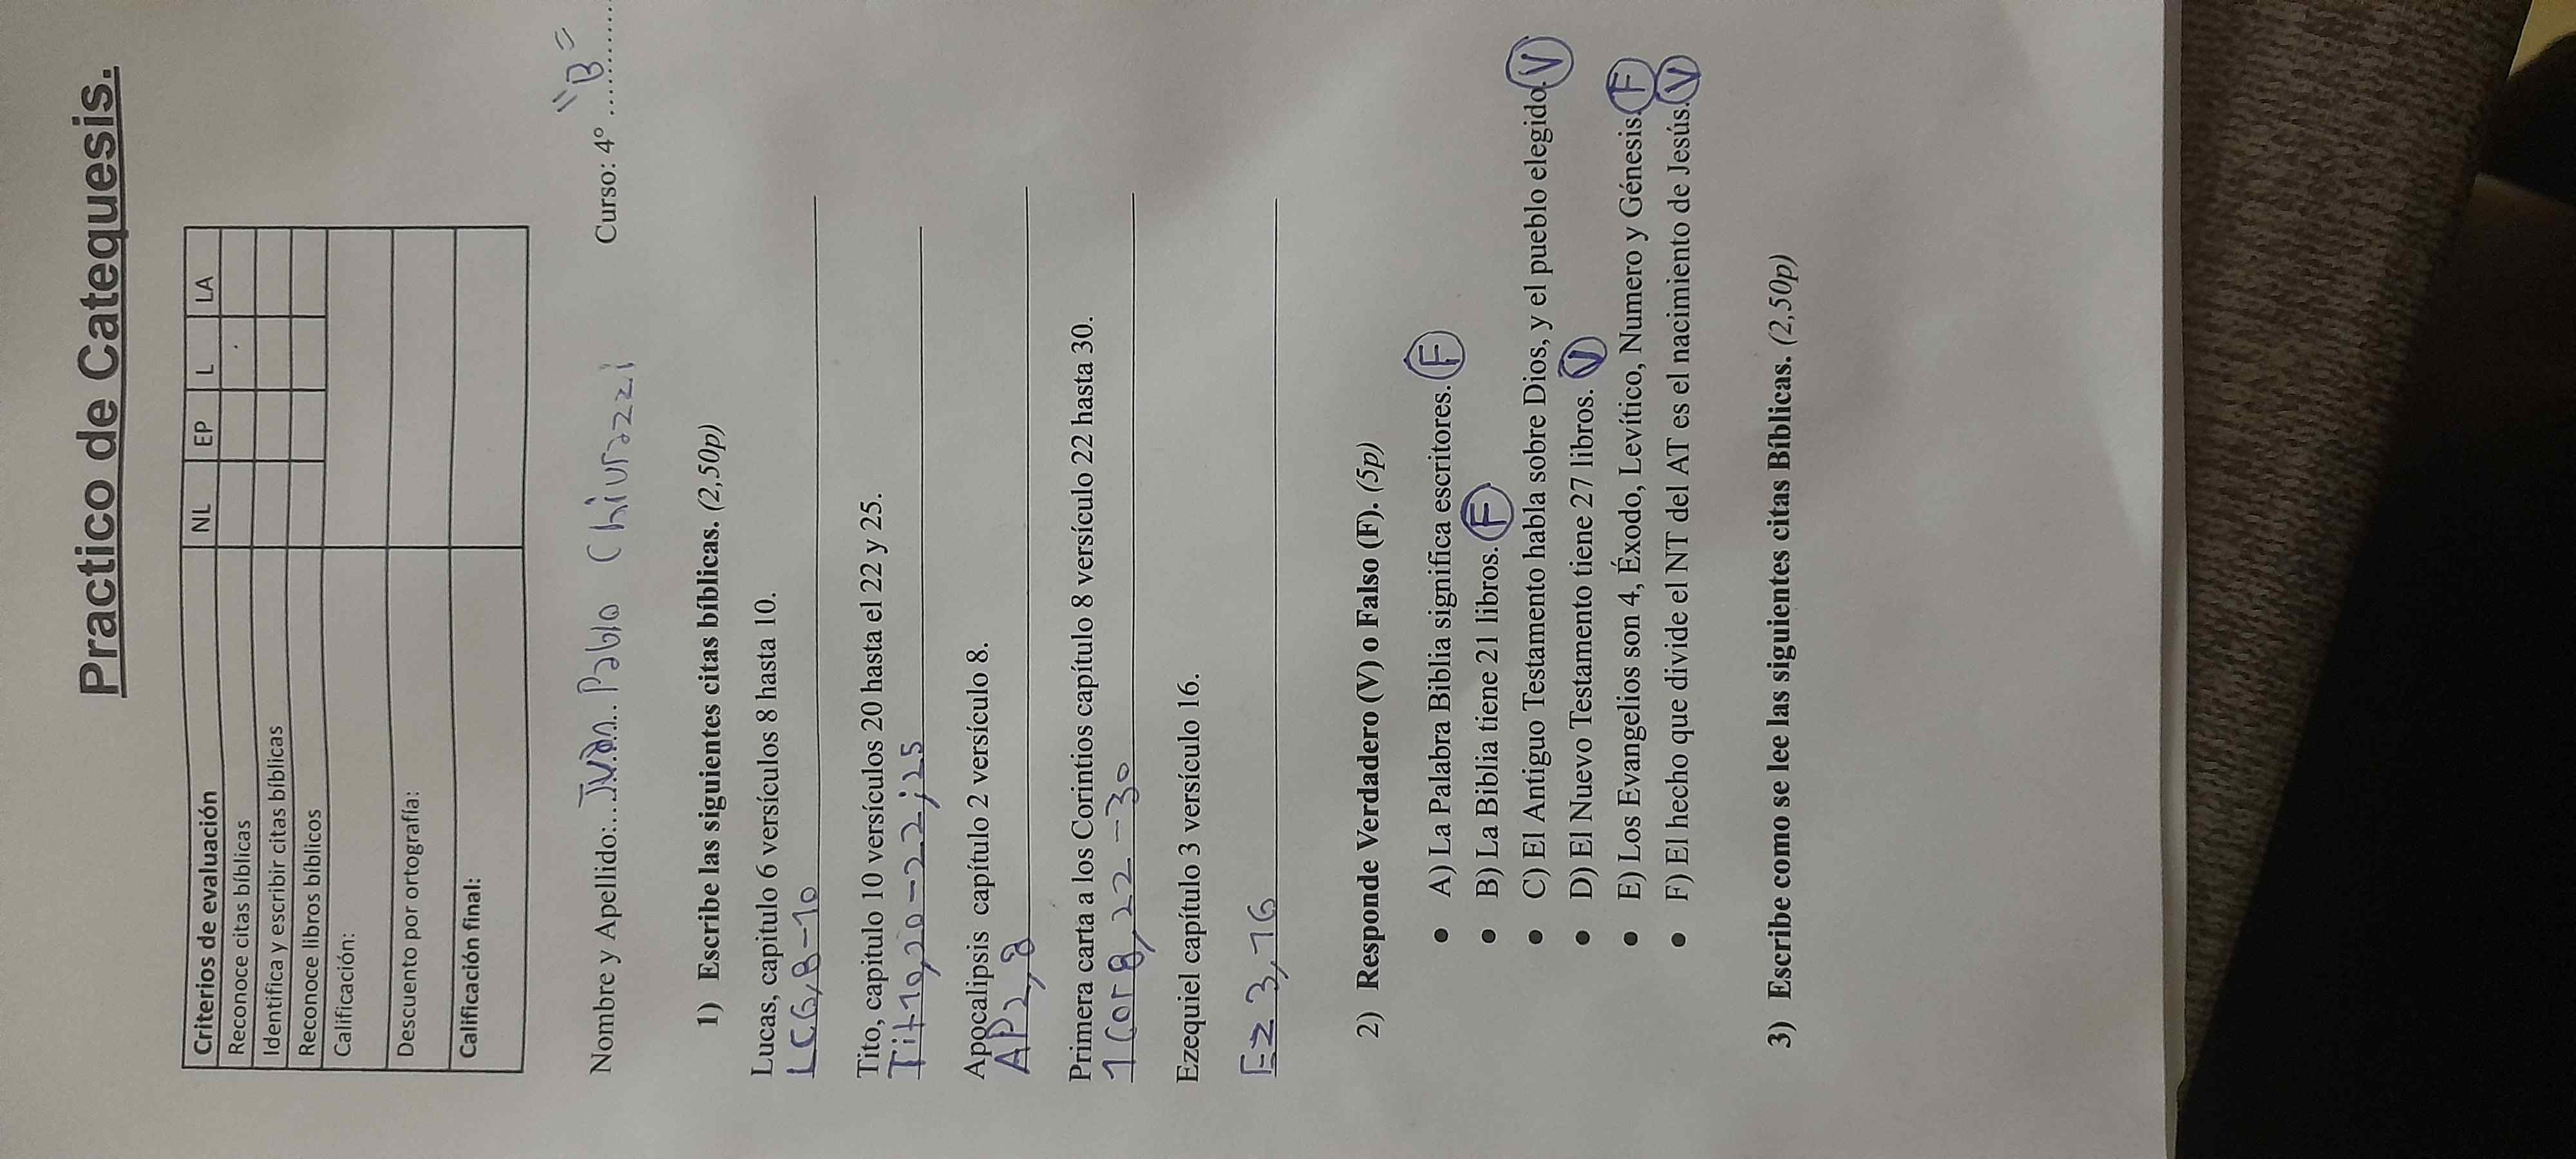 Practico de Catequesis.
Criterios de evaluación NL EP L LA
Reconoce citas bíblicas
Identifica y escribir citas bíblicas
Reconoce libros bíblicos
Calificación:
Descuento por ortografía:
Calificación final:
Nombre y Apellido:....Juan Pablo Chiurazzi Curso: 4° "B"
1) Escribe las siguientes citas bíblicas. (2,50p)
Lucas, capitulo 6 versículos 8 hasta 10.
LC6,8-10
Tito, capitulo 10 versículos 20 hasta el 22 y 25.
Tit10,20-22;25
Apocalipsis capítulo 2 versículo 8.
AP2,8
Primera carta a los Corintios capítulo 8 versículo 22 hasta 30.
1 Cor 8,22-30
Ezequiel capítulo 3 versículo 16.
Ez 3,16
2) Responde Verdadero (V) o Falso (F). (5p)
• A) La Palabra Biblia significa escritores. F
• B) La Biblia tiene 21 libros. F
• C) El Antiguo Testamento habla sobre Dios, y el pueblo elegido. V
• D) El Nuevo Testamento tiene 27 libros. V
• E) Los Evangelios son 4, Éxodo, Levítico, Numero y Génesis. F
• F) El hecho que divide el NT del AT es el nacimiento de Jesús. V
3) Escribe como se lee las siguientes citas Bíblicas. (2,50p)